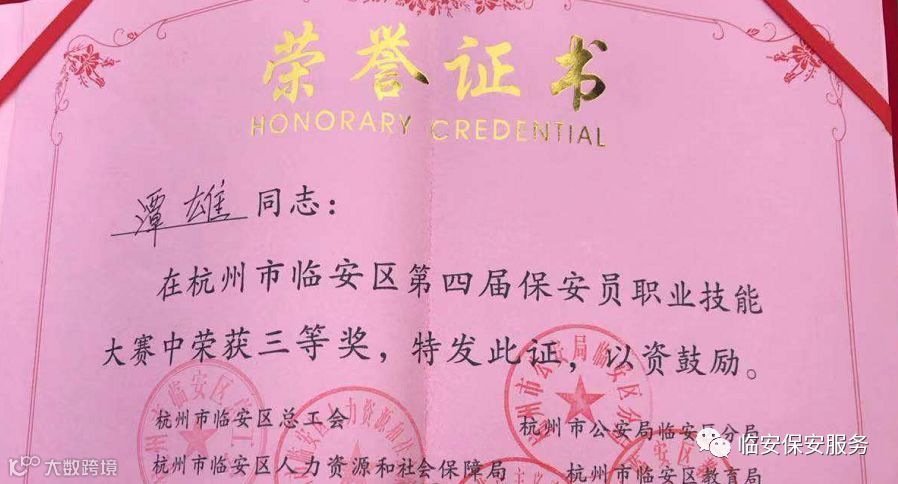 荣誉证书
HONORARY CREDENTIAL
潭雄同志：
在杭州市临安区第四届保安员职业技能
大赛中荣获三等奖，特发此证，以资鼓励。
杭州市临安区总工会
杭州市公安局临安区分局
杭州市临安区人力资源和社会保障局
杭州市临安区教育局
临安保安服务
大数跨境